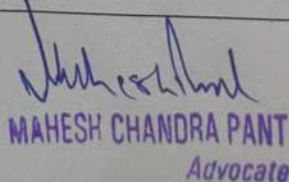 MAHESH CHANDRA PANT
Advocate